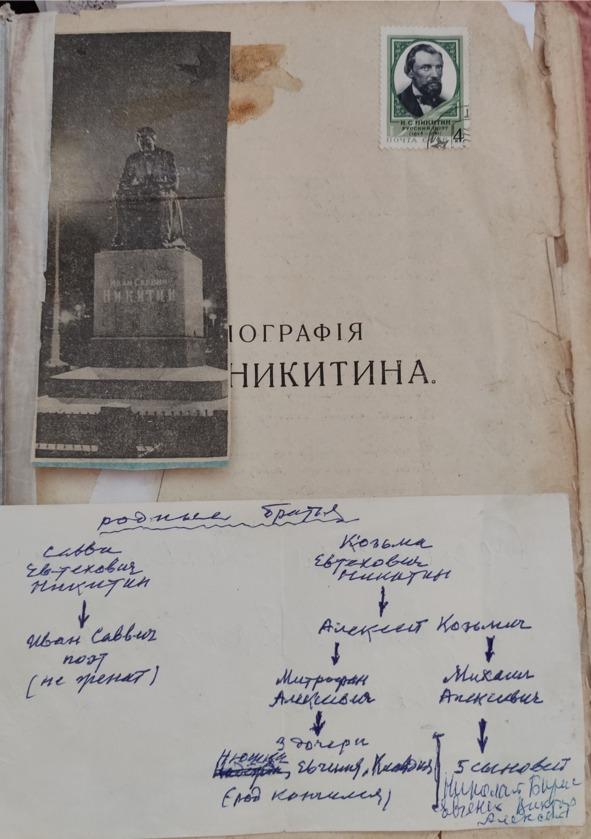 И.С. НИКИТИН
РУССКИЙ ПОЭТ
ПОЧТА
4
ИВАН САВВИЧ
НИКИТИН
ІОГРАФІЯ
НИКИТИНА.
родные братья
Савви
Евтехович
Никитин
Иван Саввич
поэт
(не женат)
Козьма
Евтехович
Никитин
Алексей Козьмич
Митрофан
Алексеевич
3 дочери
Нюшки
, Евгения, Клавдия
(род кончился)
Михаил
Алексеевич
5 сыновей
Николай Борис
Евгений Виктор
Алексей